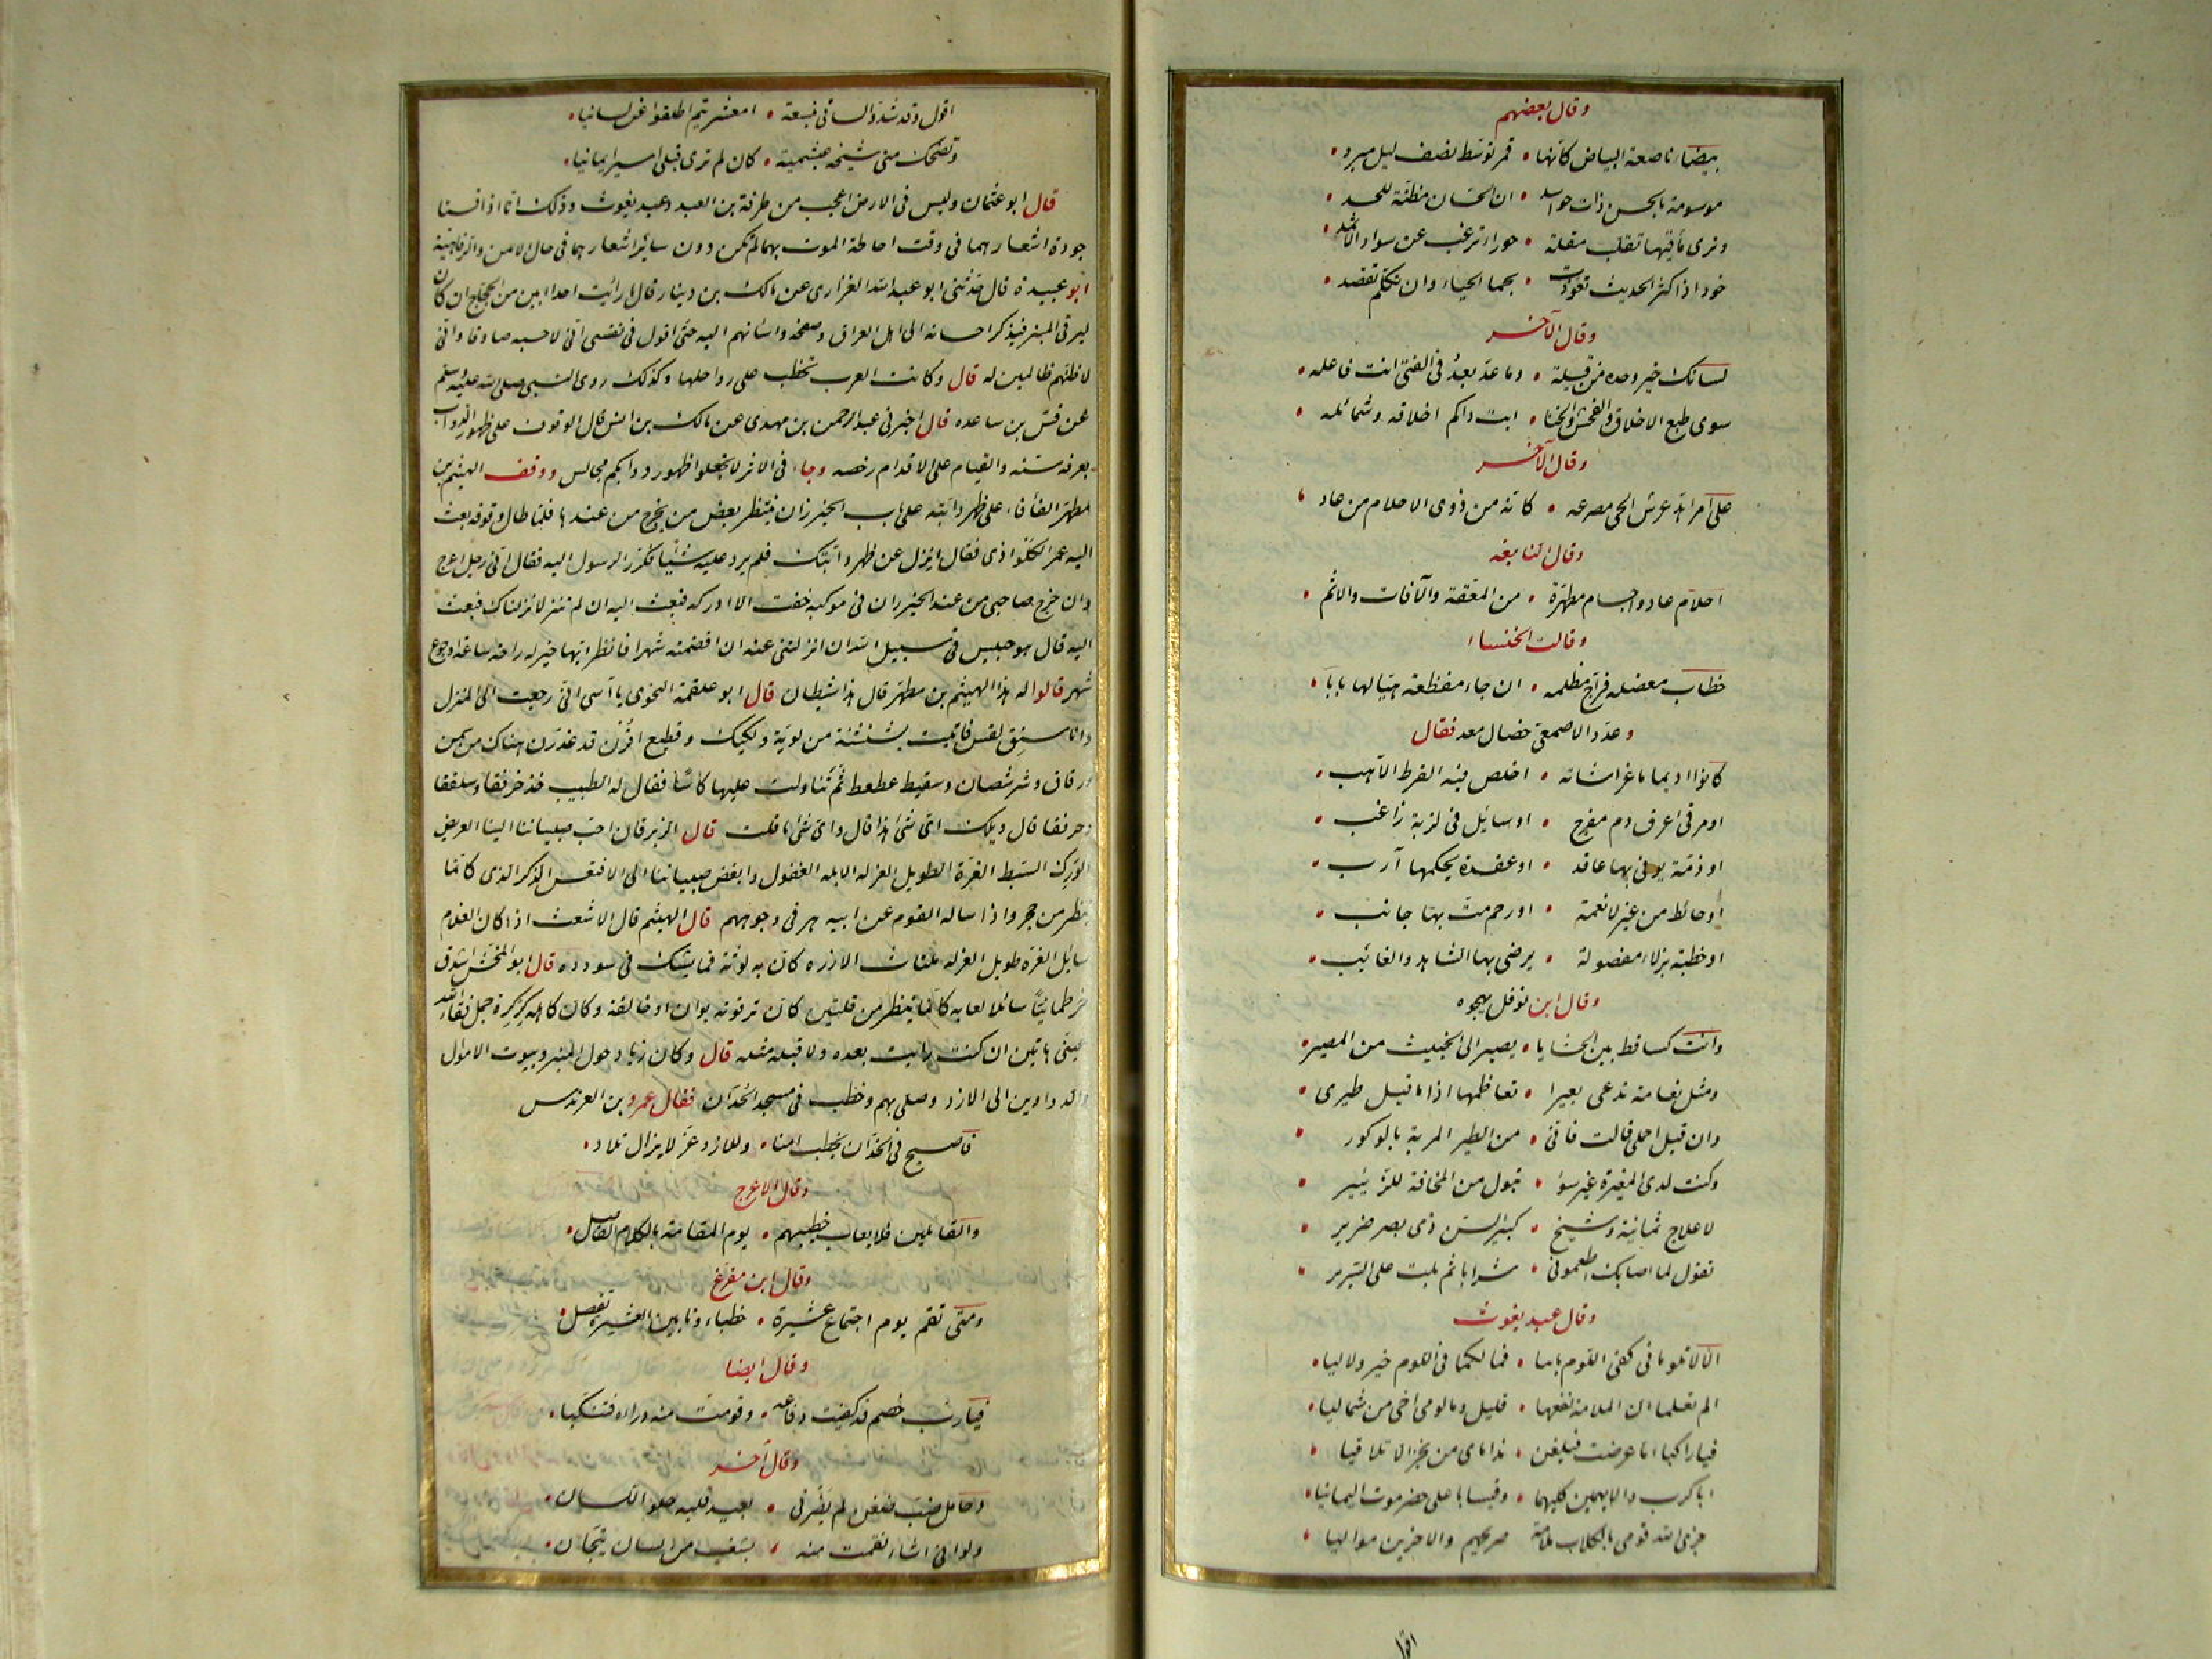 وقال بعضهم
بيضاء ناصعة البياض كانها • قمر توسط نصف ليل مبرد •
موسومة بالحسن ذات حواسد • ان الحسان مظنة للحسد •
وترى مأقيها تقلب مقلة • حوراء ترغب عن سواد الاثمد •
خود اذا كثر الحديث تعوذت • بحما الحياء وان تكلم تقصد •
وقال الآخر
لسانك خير وحده من قبيلة • وما عد بعد في الفتى انت فاعله •
سوى طبع الاخلاق والفحش والخنا • ابت ذاكم اخلاقه وشمائله •
وقال الآخر
على امرء هد عرش الحي مصرعه • كانه من ذوى الاحلام من عاد •
وقال النابغه
احلام عاد واجسام مطهرة • من المعقة والآفات والاثم •
وقالت الخنساء
خطاب معضلة فراج مظلمه • ان جاء مفظعة هيا لها بابا •
وعدد الاصمعى خصال معد فقال
كانوا اديما ماعزا شاته • اخلص فيه القرط الآهب •
او مرقى اعرف دم مفرج • او سائل في لزبة راغب •
او ذمة يوفي بها عاقد • او عقدة يحكمها آرب •
او حائط من غير لا نعمة • او رحم مت بها جانب •
او خطبة بزلاء مفصولة • يرضى بها الشاهد والغائب •
وقال ابن نوفل يهجوه
وانت كساقط بين الحشايا • يصير الى الخبيث من المصير •
ومثل نعامة تدعى بعيرا • تعاظمها اذا ما قيل طيرى •
وان قيل احملى قالت فانى • من الطير المربة بالوكور •
وكنت لدى المغيرة غير سوء • تبول من المخافة للزئير •
لاعلاج ثمانية وشيخ • كبير السن ذى بصر ضرير •
تقول لما اصابك اطعمونى • شرابا ثم بلت على السرير •
وقال عبد يغوث
الا لا تلومانى كفى اللوم ما بيا • فما لكما في اللوم خير ولا ليا •
الم تعلما ان الملامة نفعها • قليل وما لومى اخى من شماليا •
فيا راكبا اما عرضت فبلغن • نداماى من نجران الا تلاقيا •
ابا كرب والايهمين كليهما • وقيسا باعلى حضرموت اليمانيا •
جزى الله قومى بالكلاب ملامة صريحهم والاخرين مواليا •
اقول
اقول وقد شدوا لسانى بنسعة • امعشر تيم اطلقوا عن لسانيا •
وتضحك منى شيخة عبشمية • كان لم ترى قبلى اسيرا يمانيا •
قال ابو عثمان وليس في الارض اعجب من طرفة بن العبد وعبد يغوث وذلك انا اذا قسنا
جودة اشعارهما في وقت احاطة الموت بهما لم تكن دون سائر اشعارهما في حال الامن والرفاهية
ابو عبيدة قال حدثنى ابو عبد الله الفزارى عن مالك بن دينار قال ما رايت احدا ابين من الحجاج ان كان
ليرقى المنبر فيذكر احسانه الى اهل العراق وصفحه واساتهم اليه حتى اقول في نفسى انى لاحسبه صادقا وانى
لاظنهم ظالمين له قال وكانت العرب تخطب على رواحلها وكذلك روى النبى صلى الله عليه وسلم
عن قس بن ساعده قال اخبرنى عبد الرحمن بن مهدى عن مالك بن انس قال الوقوف على ظهور الدواب
بعرفه سنه والقيام على الاقدام رخصه وجاء في الاثر لا تجعلوا ظهور دوابكم مجالس ووقف الهيثم بن
مطهر الفأفاء على ظهر دابته على باب الخيزران ينتظر بعض من يخرج من عندها فلما طال وقوفه بعث
اليه عمر الكلواذى فقال انزل عن ظهر دابتك فلم يرد عليه شيئا فكرر الرسول اليه فقال انى رجل اعرج
وان خرج صاحبى من عند الخيزران في موكبه خفت الا ادركه فبعث اليه ان لم تنزل انزلناك فبعث
اليه قال هو حبيس في سبيل الله ان انزلتنى عنه ان اقضمته شهرا فانظر ايها خير له راحة ساعة او جوع
شهر قالوا له هذا الهيثم بن مطهر قال هذا شيطان قال ابو علقمة النحوى يا آسى انى رجعت الى المنزل
وانا سنق لقس فاتيت بشنشنة من لوية ولكيك وقطيع اقرن قد غدرن هناك من سمن
ورقاق وشرشصان وسقيط عطعط ثم تناولت عليها كاسا فقال له الطبيب خذ خرفقا وسلفقا
وجرفقا قال ويلك اى شئ هذا قال واى شئ ما قلت قال الزبرقان احب صبياننا الينا العريض
الورك السبط الغرة الطويل الغرله الابله الغفول وابغض صبياننا الى الاقيعس الذكر الذى كانما
ينظر من جحر واذا ساله القوم عن ابيه هر في وجوههم قال الهيثم قال الاشعث اذا كان الغلام
سائل الغرة طويل الغرله ملتاث الازره كان به لوثة فما يشك في سودده قال ابو المخش اشدق
خرطمانيا سائلا لعابه كانما ينظر من قلتين كان ترقوته بوان او خالفة وكان كاهله كركرة جمل فقأ الله
عينى هاتين ان كنت رايت بعده ولا قبله مثله قال وكان زياد حول المنبر وبيوت الاموال
والدواوين الى الازد وصلى بهم وخطب في مسجد الحدان فقال عمرو بن العرندس
فاصبح في الحدان يخطب امنا • وللازد عز لا يزال تلاد •
وقال الاعرج
والقائلين فلا يعاب خطيبهم • يوم المقامة بالكلام الفاصل •
وقال ابن مفرغ
ومتى تقم يوم اجتماع عشيرة • خطباؤنا بين العشيرة تفصل •
وقال ايضا
فيا رب خصم قد كفيت دفاعه • وقومت منه دراه فتنكبا •
وقال آخر
وحامل ضب ضغن لم يضرنى • بعيد قلبه حلو اللسان •
ولو انى اشاء نقمت منه • بشغب من لسان تيجان •